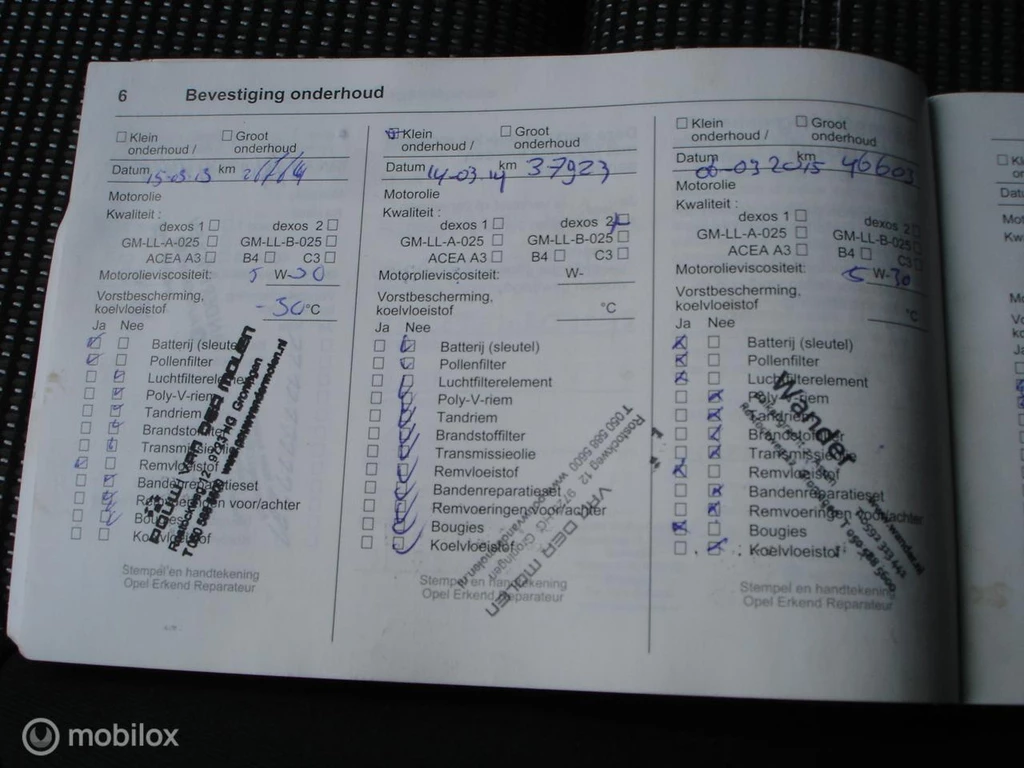 6 Bevestiging onderhoud
☐ Klein onderhoud / ☐ Groot onderhoud
Datum 15-03-13 km
Motorolie
Kwaliteit :
dexos 1 ☐ dexos 2 ☐
GM-LL-A-025 ☐ GM-LL-B-025 ☐
ACEA A3 ☐ B4 ☐ C3 ☐
Motorolieviscositeit: 5 W-30
Vorstbescherming,
koelvloeistof -30 °C
Ja Nee
Batterij (sleutel)
Pollenfilter
Luchtfilterelement
Poly-V-riem
Tandriem
Brandstoffilter
Transmissieolie
Remvloeistof
Bandenreparatieset
Remvoeringen voor/achter
Bougies
Koelvloeistof
VAN DER MOLEN
Rostockweg 12, 9723 HG Groningen
T 050 588 5600
Stempel en handtekening
Opel Erkend Reparateur
☑ Klein onderhoud / ☐ Groot onderhoud
Datum 14-03-14 km 37923
Motorolie
Kwaliteit :
dexos 1 ☐ dexos 2 ☑
GM-LL-A-025 ☐ GM-LL-B-025 ☐
ACEA A3 ☐ B4 ☐ C3 ☐
Motorolieviscositeit: W-
Vorstbescherming,
koelvloeistof °C
Ja Nee
Batterij (sleutel)
Pollenfilter
Luchtfilterelement
Poly-V-riem
Tandriem
Brandstoffilter
Transmissieolie
Remvloeistof
Bandenreparatieset
Remvoeringen voor/achter
Bougies
Koelvloeistof
VAN DER MOLEN
Rostockweg 12
T 050 588 5600
Stempel en handtekening
Opel Erkend Reparateur
☐ Klein onderhoud / ☐ Groot onderhoud
Datum 06-03 2015 km 46603
Motorolie
Kwaliteit :
dexos 1 ☐ dexos 2 ☐
GM-LL-A-025 ☐ GM-LL-B-025 ☐
ACEA A3 ☐ B4 ☐ C3 ☐
Motorolieviscositeit: 5 W-30
Vorstbescherming,
koelvloeistof °C
Ja Nee
Batterij (sleutel)
Pollenfilter
Luchtfilterelement
Poly-V-riem
Tandriem
Brandstoffilter
Transmissieolie
Remvloeistof
Bandenreparatieset
Remvoeringen voor/achter
Bougies
Koelvloeistof
Wander
T 050 588 5600
Stempel en handtekening
Opel Erkend Reparateur
mobilox